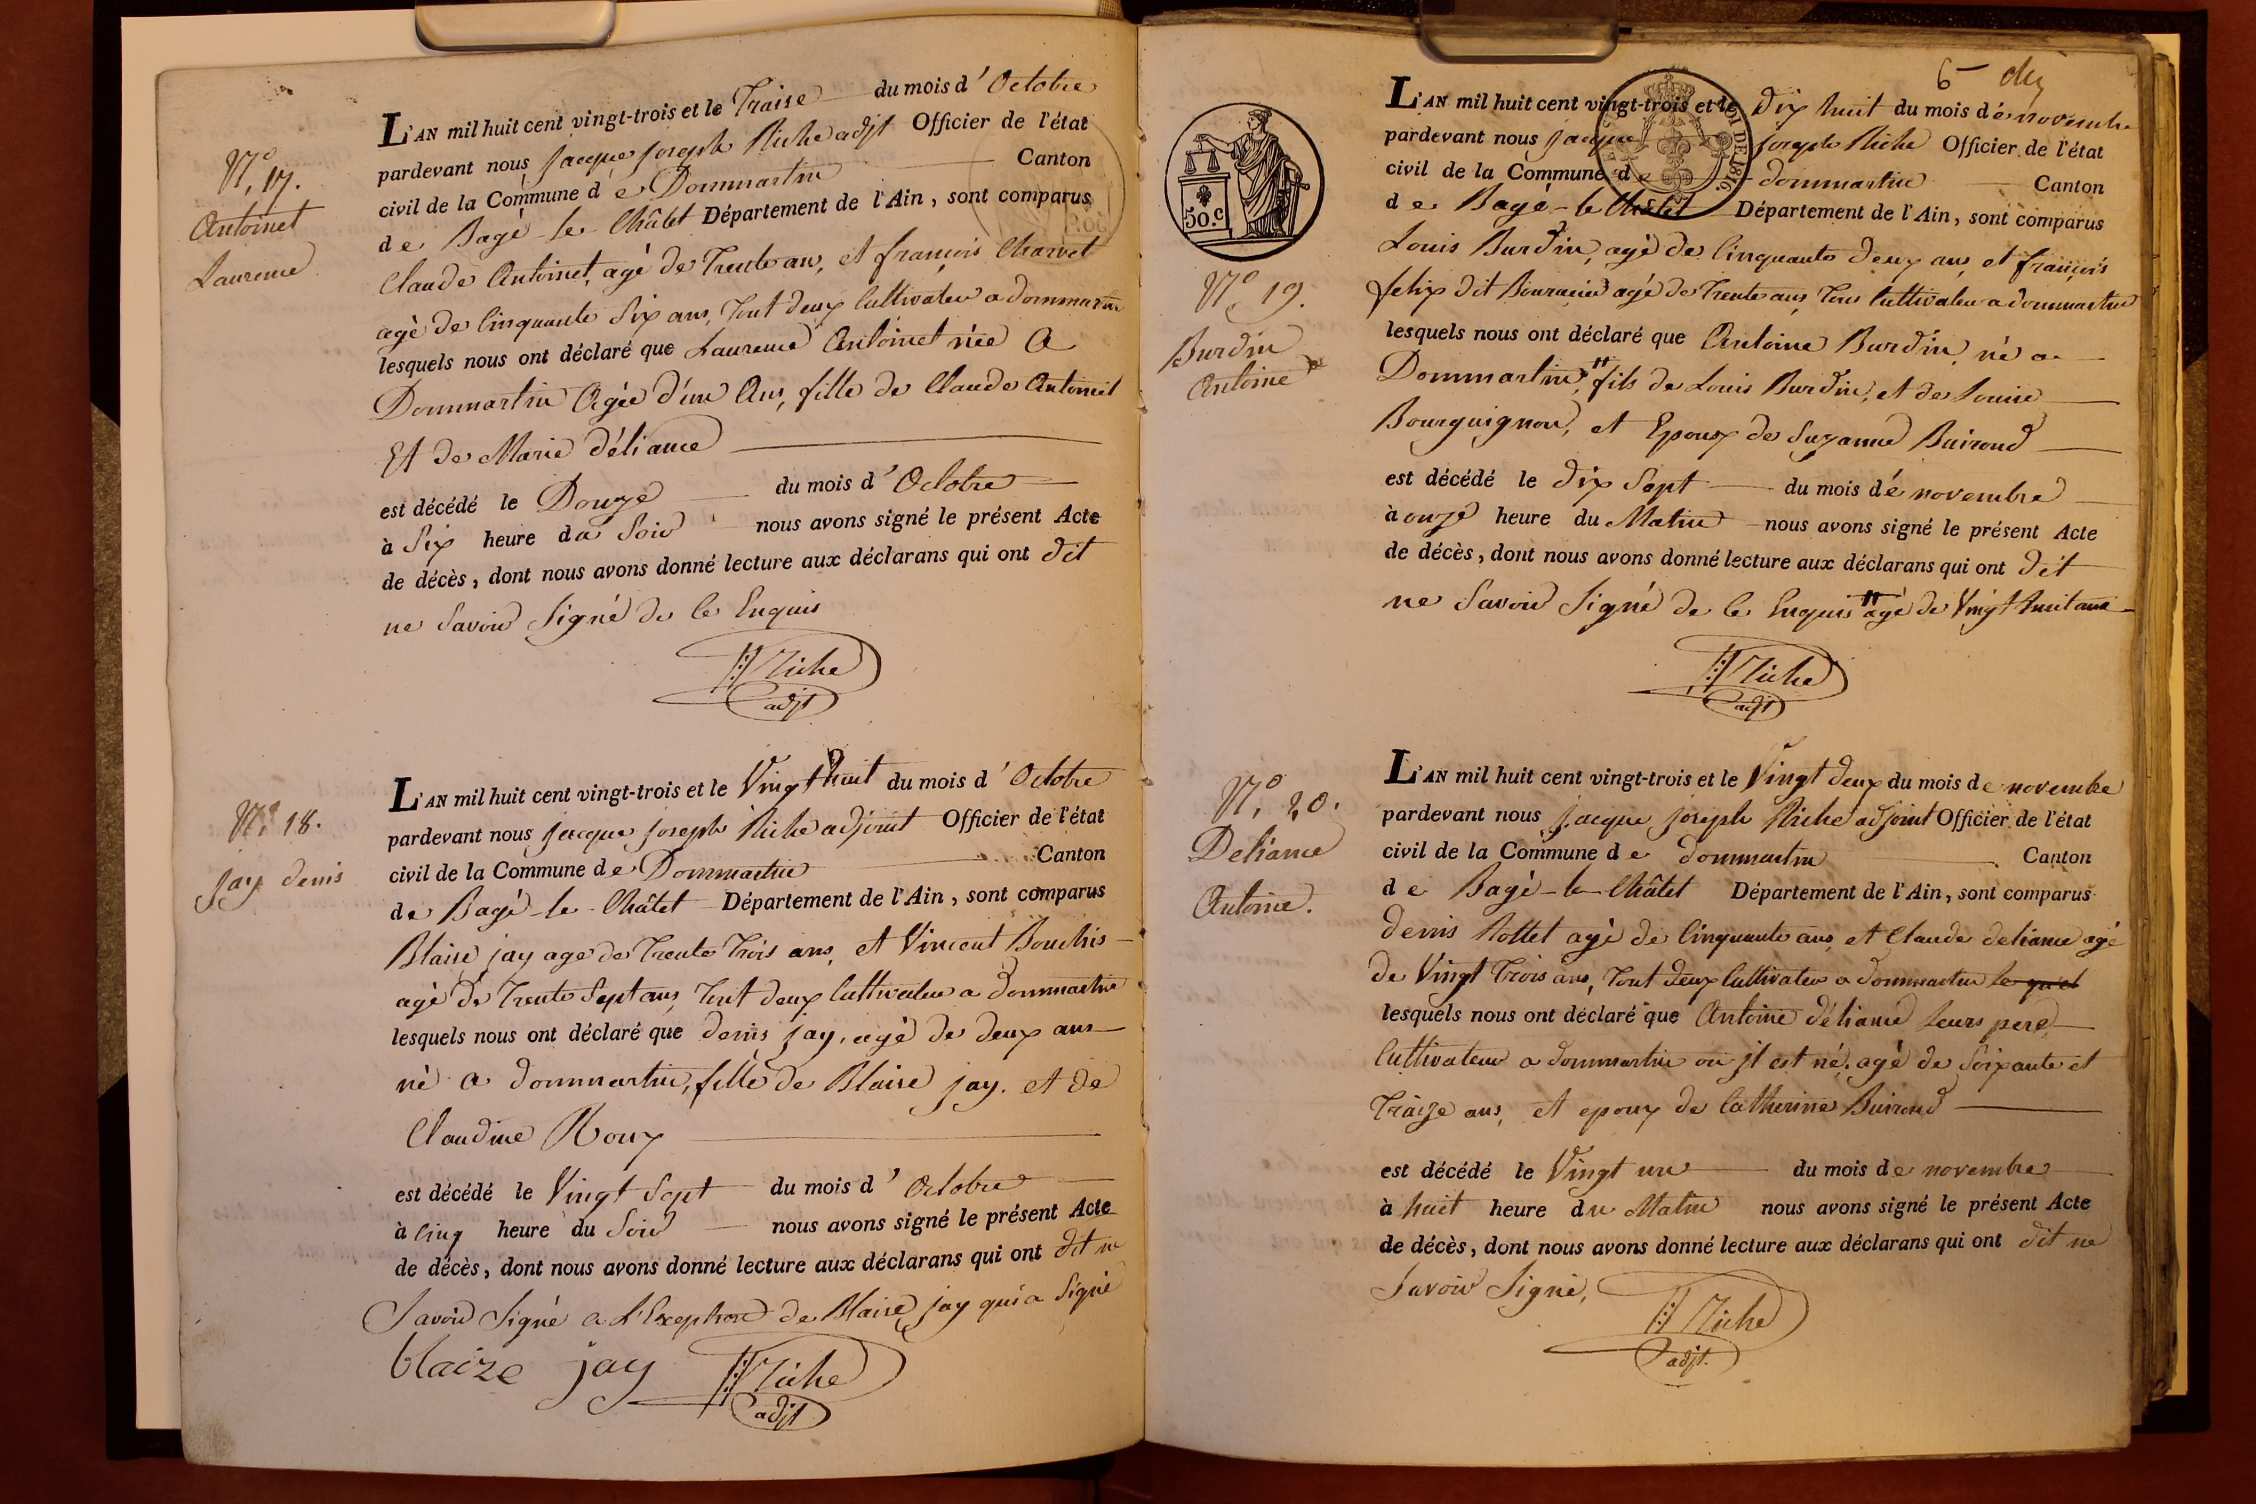 N.º 17.
Antoinet
Laurence
L'AN mil huit cent vingt-trois et le Traise du mois d' Octobre
pardevant nous Jacque Joseph Riche adjt Officier de l'état
civil de la Commune de Dommartin Canton
de Bagé-le-Châtet Département de l'Ain, sont comparus
Claude Antoinet, agé de Trente ans, et françois Charvet
agé de Cinquante Six ans, Tout deux Cultivateur a dommartin
lesquels nous ont déclaré que Laurence Antoinet née A
Dommartin Agée d'un Ans, fille de Claude Antoinet
Et de Marie déliance
est décédé le Douze du mois d' Octobre
à Six heure du Soir nous avons signé le présent Acte
de décès, dont nous avons donné lecture aux déclarans qui ont dit
ne Savoir Signé de ce Enquis
Riche
adjt
N.º 18.
jay denis
L'AN mil huit cent vingt-trois et le Vingt huit du mois d' Octobre
pardevant nous Jacque Joseph Riche adjoint Officier de l'état
civil de la Commune de Dommartin Canton
de Bagé-le-Châtet Département de l'Ain, sont comparus
Blaise jay age de Trente Trois ans, et Vincent Bouchis
agé de Trente Sept ans, Tout deux Cultivateur a dommartin
lesquels nous ont déclaré que denis jay, agé de deux ans
né a dommartin, fille de Blaise jay. et de
Claudine Roux
est décédé le Vingt Sept du mois d' Octobre
à Cinq heure du Soir nous avons signé le présent Acte
de décès, dont nous avons donné lecture aux déclarans qui ont dit ne
Savoir Signé a L'Exeption de Blaise jay qui a Signé
blaize jay Riche
adjt
6
50.c
LOI DE 1816.
N.º 19.
Burdin
Antoine
L'AN mil huit cent vingt-trois et le Dix huit du mois de novembre
pardevant nous Jacque Joseph Riche Officier de l'état
civil de la Commune de dommartin Canton
de Bagé-le Châtet Département de l'Ain, sont comparus
Louis Burdin, agé de Cinquante deux ans, et françois
felix dit Bournin agé de Trente ans, Tous Cultivateur a dommartin
lesquels nous ont déclaré que Antoine Burdin né a
Dommartin, " fils de Louis Burdin, et de Louise
Bourguignon, et Epoux de Suzanne Buiron
est décédé le dix Sept du mois de novembre
à onze heure du Matin nous avons signé le présent Acte
de décès, dont nous avons donné lecture aux déclarans qui ont dit
ne Savoir Signé de ce Enquis " agé de Vingt huit ans
Riche
adjt
N.º 20.
Deliance
Antoine.
L'AN mil huit cent vingt-trois et le Vingt deux du mois de novembre
pardevant nous Jacque Joseph Riche adjoint Officier de l'état
civil de la Commune de dommartin Canton
de Bagé-le-Châtet Département de l'Ain, sont comparus
denis Rottet agé de Cinquante ans, et Claude deliance agé
de Vingt Trois ans, Tout deux Cultivateur a dommartin le quel
lesquels nous ont déclaré que Antoine déliance Leurs pere
Cultivateur a dommartin ou jl est né, agé de Soixante et
Traize ans, et epoux de Catherine Buirond
est décédé le Vingt un du mois de novembre
à huit heure du Matin nous avons signé le présent Acte
de décès, dont nous avons donné lecture aux déclarans qui ont dit ne
Savoir Signé,
Riche
adjt.